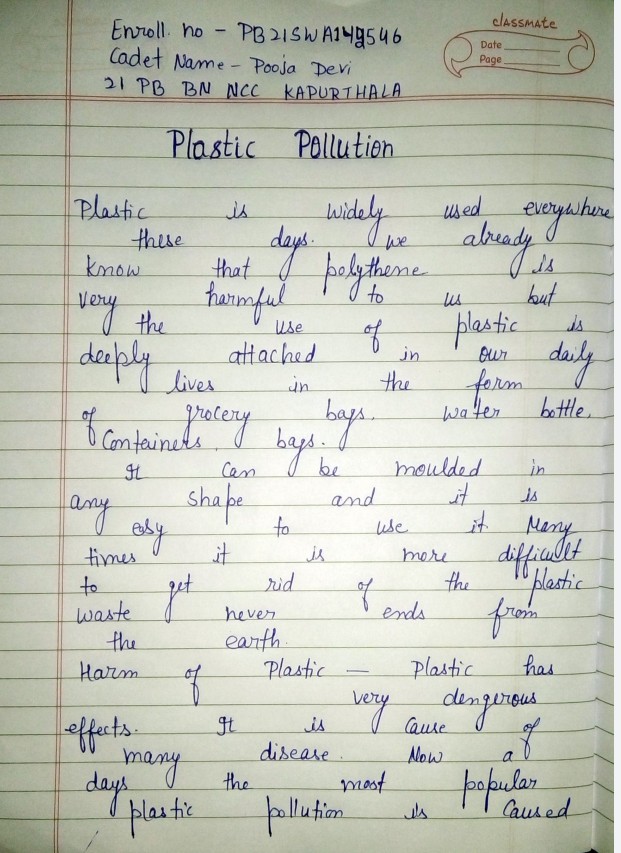 Enroll. no - PB21SWA149546
Cadet Name - Pooja Devi
21 PB BN NCC KAPURTHALA
classmate
Date
Page
Plastic Pollution
Plastic is widely used everywhere
these days. we already
know that polythene is
very harmful to us but
the use of plastic is
deeply attached in our daily
lives in the form
of grocery bags. water bottle.
Containers. bags.
It can be moulded in
any shape and it is
easy to use it. Many
times it is more difficult
to get rid of the plastic
waste never ends from
the earth.
Harm of Plastic — Plastic has
very dengerous
effects. It is cause of
many disease. Now a
days the most popular
plastic pollution is caused